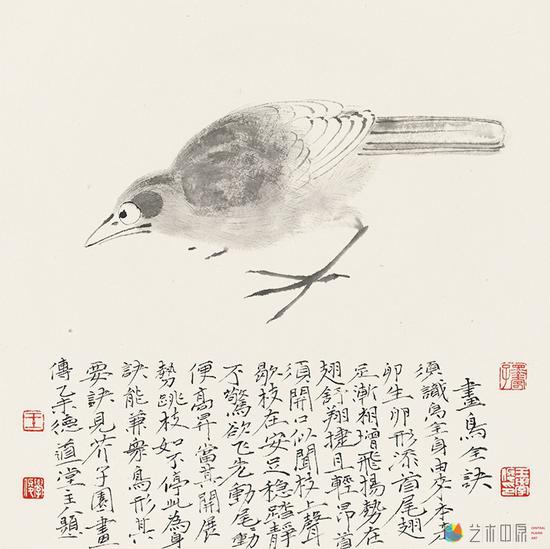 畫鳥全訣
須識鳥全身由來本
卵生卵形添首尾翅
足漸相增飛揚勢在
翅舒翔捷且輕昂首
須開口似聞枝上聲
歇枝在安足穩踏靜
不驚欲飛先動尾動
便高昇當其開展
勢跳枝如不停此為身
訣能兼衆鳥形其
要訣見芥子園畫
傳乙德道堂主題
艺术中原
CENTRAL PLAINS ART